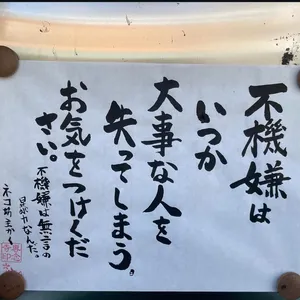 不機嫌は
いつか
大事な人を
失ってしまう。
お気をつけくだ
さい。
不機嫌は無言の
暴力なんだ。
ネコ坊主から